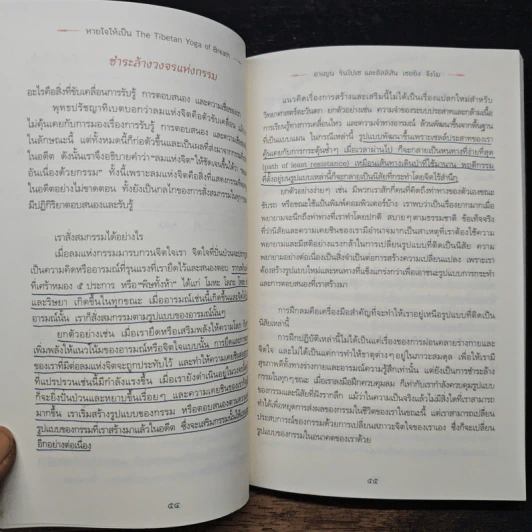 หายใจให้เป็น The Tibetan Yoga of Breath
ชำระล้างวงจรแห่งกรรม
อะไรคือสิ่งที่ขับเคลื่อนการรับรู้ การตอบสนอง และความเคยชิน
พุทธปรัชญาทิเบตบอกว่าลมแห่งจิตคือตัวขับเคลื่อน
ไม่คุ้นเคยกับการมองเรื่องการรับรู้ การตอบสนอง และความ
ในลักษณะนี้ แต่ทั้งหมดนี้ก่อตัวขึ้นและเป็นผลที่สะสมมาจาก
ในอดีต ดังนั้นเราจึงอธิบายคำว่า "ลมแห่งจิต" ให้ชัดเจนขึ้นได้ว่า
อันเนื่องด้วยกรรม" ทั้งนี้เพราะลมแห่งจิตคือสิ่งที่แสดงการ
ในอดีตอย่างไม่ขาดตอน ทั้งยังเป็นกลไกของการสั่งสมกรรมใน
มีปฏิกิริยาตอบสนองและรับรู้
เราสั่งสมกรรมได้อย่างไร
เมื่อลมแห่งกรรมมารบกวนจิตใจเรา จิตใจที่ปั่นป่วน
เป็นความคิดหรืออารมณ์ที่รุนแรงที่เรายึดไว้และสนองตอบ
ที่เศร้าหมอง ๕ ประการ หรือ "พิษทั้งห้า" ได้แก่ โมหะ โลภะ
และริษยา เกิดขึ้นในทุกขณะ เมื่ออารมณ์เช่นนี้เกิดขึ้นและ
อารมณ์นั้น เราก็สั่งสมกรรมตามรูปแบบของอารมณ์นั้นๆ
ยกตัวอย่างเช่น เมื่อเรายึดหรือเสริมพลังให้ความโลภ
เพิ่มพลังให้แนวโน้มของอารมณ์หรือจิตใจแบบนั้น การยึด
ของเราที่มีต่อลมแห่งจิตจะถูกประทับไว้ และทำให้ความเคยชินของ
ที่แปรปรวนเช่นนี้มีกำลังแรงขึ้น เมื่อเรายังดำเนินอยู่ในวงจร
ก็จะยิ่งปั่นป่วนและหยาบขึ้นเรื่อยๆ และความเคยชินของเรา
มากขึ้น เราเริ่มสร้างรูปแบบของกรรม หรือตอบสนองตาม
รูปแบบของกรรมที่เราสร้างมาแล้วในอดีต ซึ่งจะเสริมกรรมนั้นให้
อีกอย่างต่อเนื่อง
๕๔
อาเญน รินโปเช และอัลลิสัน เชยยิง จังโม
แนวคิดเรื่องการสร้างและเสริมนี้ไม่ได้เป็นเรื่องแปลกใหม่สำหรับ
วิทยาศาสตร์ตะวันตก ยกตัวอย่าง เช่น ความจำของระบบประสาทและกล้ามเนื้อ
การเรียนรู้ทางการเคลื่อนไหว และความจำทางอารมณ์ ล้วนพัฒนาขึ้นจากพื้นฐาน
ที่เป็นแบบแผน ในกรณีเหล่านี้ รูปแบบพัฒนาขึ้นเพราะเซลล์ประสาทของเรา
คุ้นเคยกับการกระตุ้นซ้ำๆ เมื่อเวลาผ่านไป ก็จะกลายเป็นหนทางที่ง่ายที่สุด
(path of least resistance) เหมือนเส้นทางเดินป่าที่ใช้มานาน พฤติกรรม
ที่ตั้งอยู่บนรูปแบบเหล่านี้ก็จะกลายเป็นนิสัยที่กระทำโดยจิตไร้สำนึก
ยกตัวอย่างง่ายๆ เช่น มีพวกเราสักกี่คนที่คิดถึงท่าทางของตัวเองขณะ
ขับรถ หรือขณะใช้แป้นพิมพ์คอมพิวเตอร์บ้าง เราพบว่าเป็นเรื่องยากมากเมื่อ
พยายามจะนึกถึงท่าทางที่เราทำโดยปกติ สบายๆ ตามธรรมชาติ ข้อเท็จจริง
ที่ว่านิสัยและความเคยชินของเรามีอำนาจมากเป็นสาเหตุที่เราต้องใช้ความ
พยายามและมีสติอย่างแรงกล้าในการเปลี่ยนรูปแบบที่ติดเป็นนิสัย ความ
พยายามอย่างต่อเนื่องเป็นสิ่งจำเป็นต่อการก่อเกิดความเปลี่ยนแปลง เพราะเรา
ต้องสร้างรูปแบบใหม่และหนทางที่แข็งแกร่งกว่าเพื่อเอาชนะรูปแบบการกระทำ
และการตอบสนองที่เราสร้างมา
การฝึกลมคือเครื่องมือสำคัญที่จะทำให้เราอยู่เหนือรูปแบบที่ติดเป็น
นิสัยเหล่านี้
การฝึกปฏิบัติเหล่านี้ไม่ได้เป็นแค่เรื่องของการผ่อนคลายร่างกายและ
จิตใจ และไม่ได้เป็นแค่การทำให้ธาตุต่างๆ อยู่ในภาวะสมดุล เพื่อให้เรามี
สุขภาพดีทั้งทางร่างกายและอารมณ์ความรู้สึกเท่านั้น แต่ยังเป็นการชำระล้าง
กรรมในทุกๆ ขณะ เมื่อเราลงมือฝึกควบคุมลม ก็เท่ากับเรากำลังควบคุมรูปแบบ
ของกรรมและนิสัยที่ฝังรากลึก แม้ว่าในความเป็นจริงแล้วไม่มีสิ่งใดที่เราสามารถ
ทำได้เพื่อหยุดการส่งผลของกรรมในชีวิตของเราในขณะนี้ แต่เราสามารถเปลี่ยน
ประสบการณ์ของกรรมด้วยการเปลี่ยนสภาวะจิตใจของเราเอง ซึ่งก็จะเปลี่ยน
รูปแบบของกรรมในอนาคตของเราด้วย
๕๕